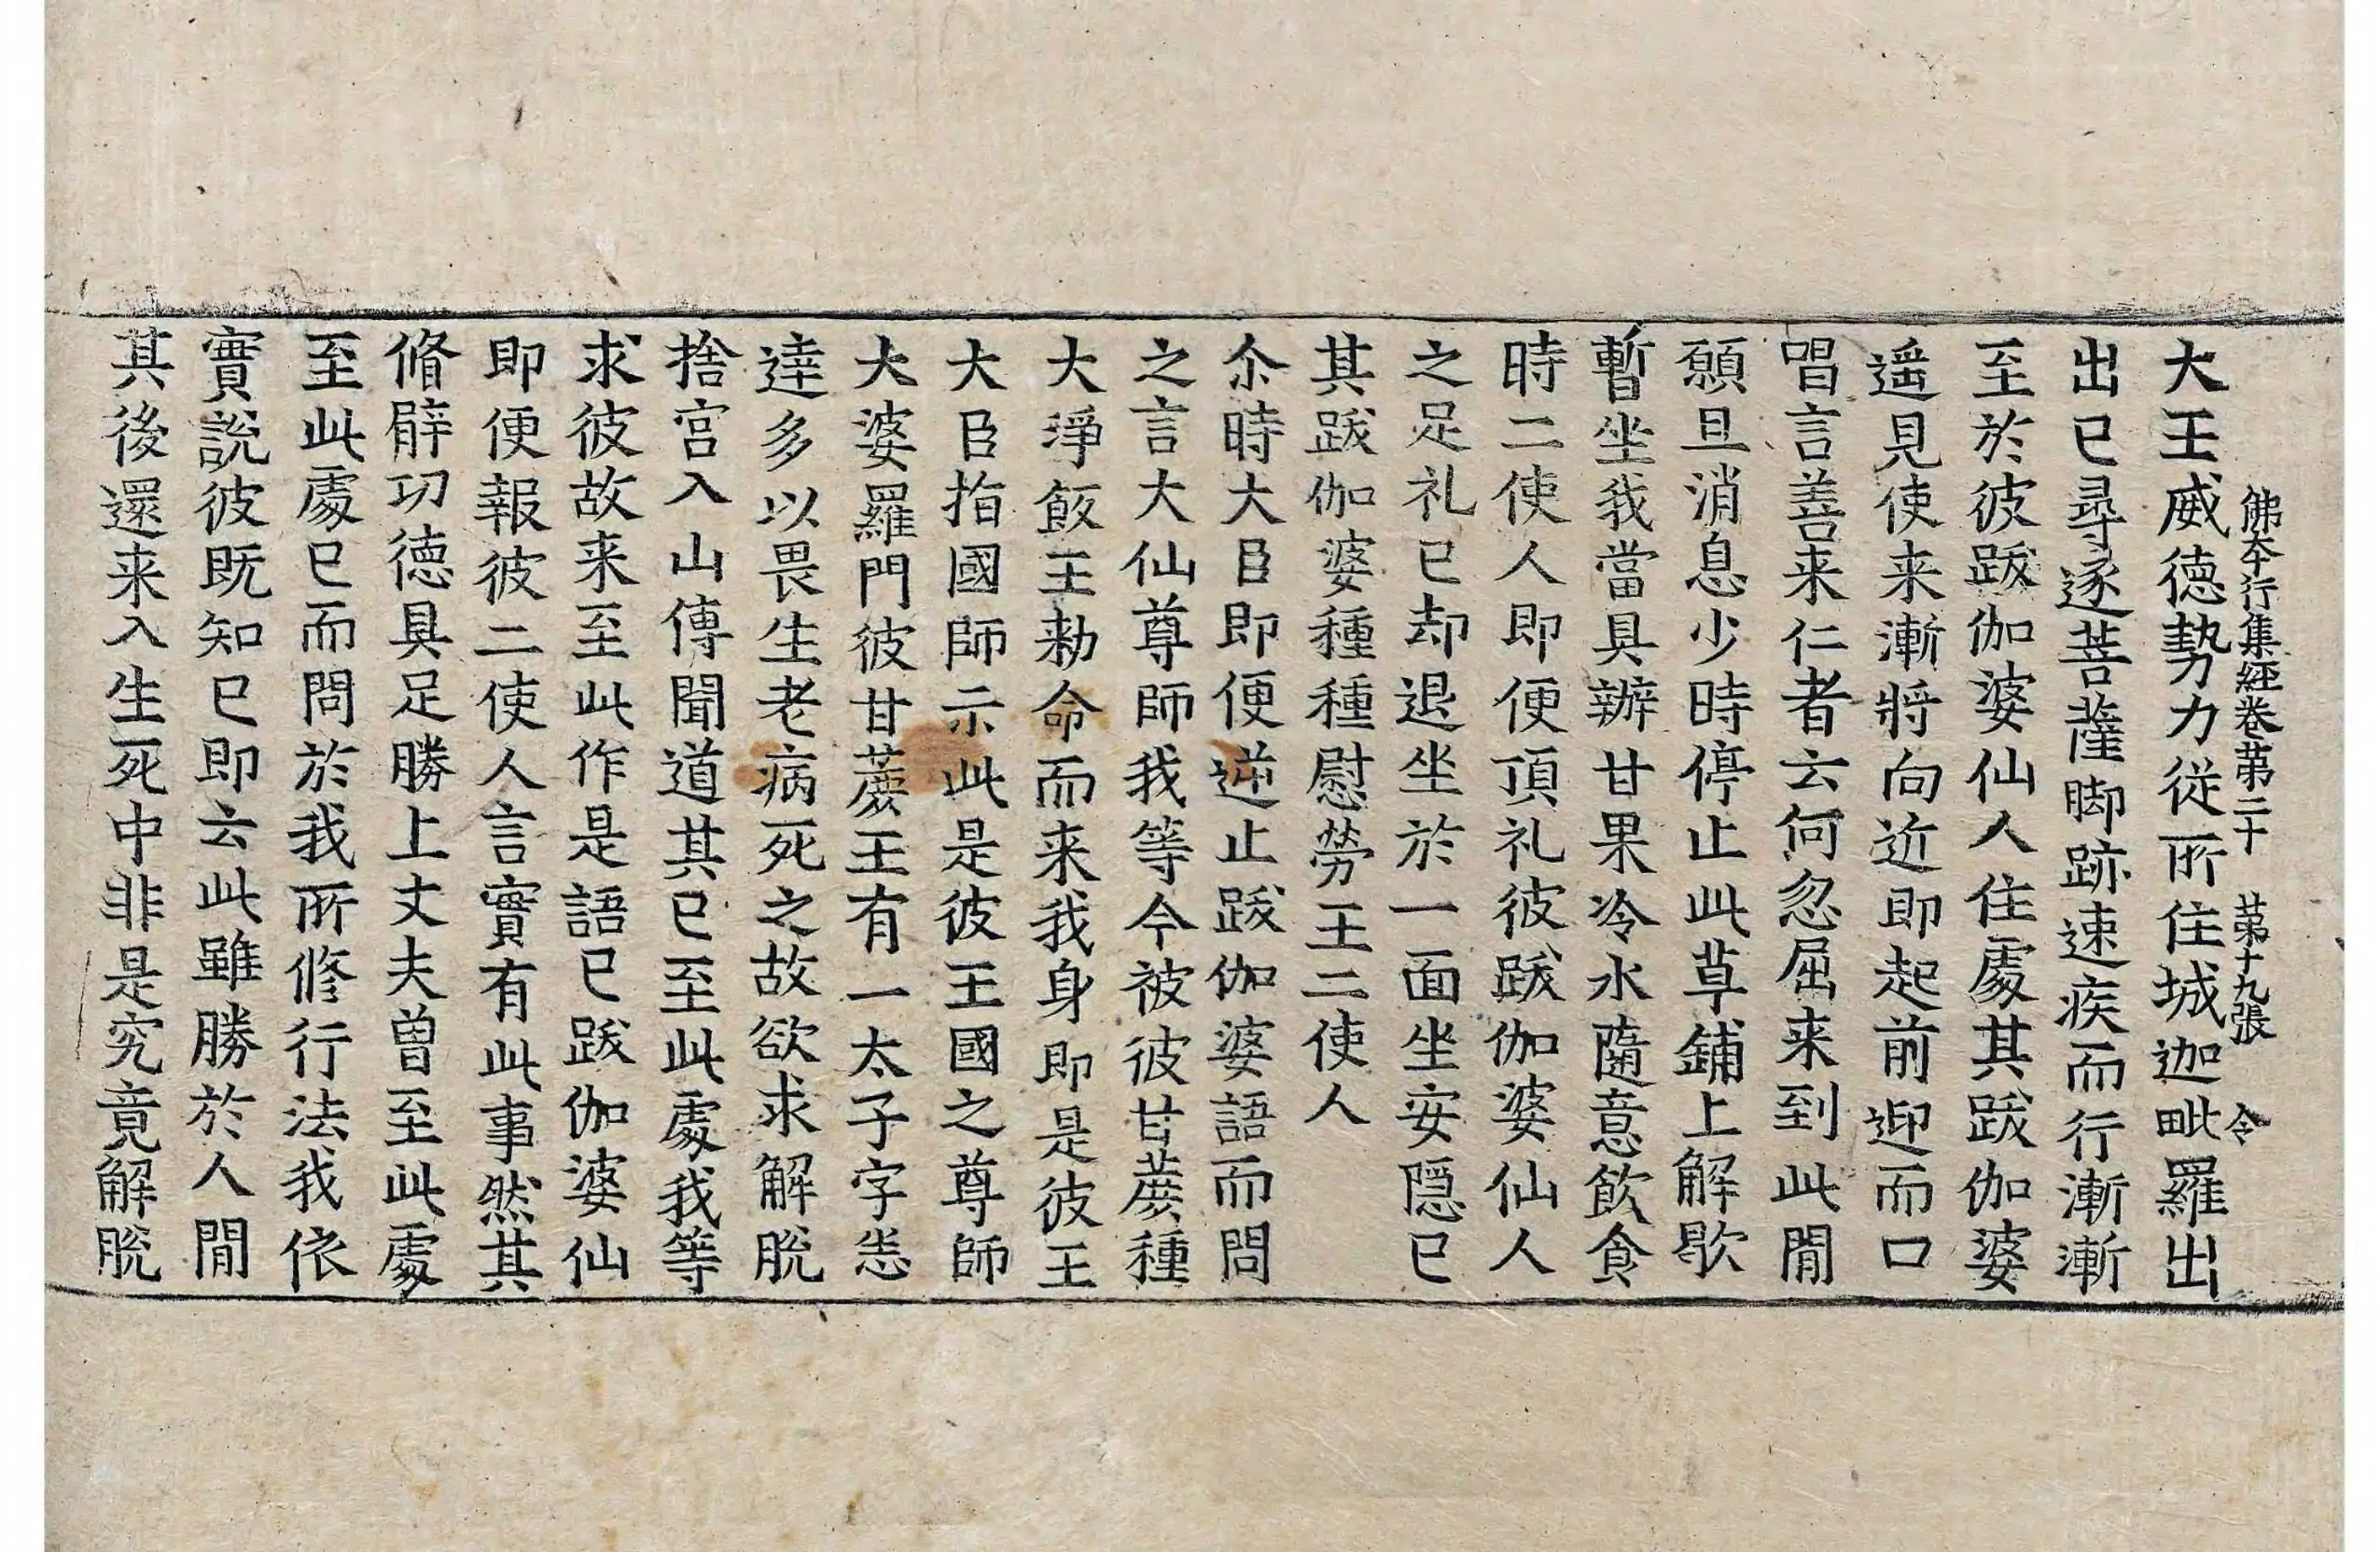 佛本行集經卷第二十　第十九張　令
大王威德勢力從所住城迦毗羅出
出已尋逐菩薩脚跡速疾而行漸漸
至於彼跋伽婆仙人住處其跋伽婆
遥見使来漸將向近即起前迎而口
唱言善来仁者云何忽屈来到此閒
願且消息少時停止此草鋪上解歇
暫坐我當具辦甘果冷水隨意飲食
時二使人即便頂礼彼跋伽婆仙人
之足礼已却退坐於一面坐安隱已
其跋伽婆種種慰勞王二使人
尒時大臣即便逆止跋伽婆語而問
之言大仙尊師我等今被彼甘蔗種
大淨飯王勑命而来我身即是彼王
大臣指國師示此是彼王國之尊師
大婆羅門彼甘蔗王有一太子字悉
達多以畏生老病死之故欲求解脫
捨宫入山傳聞道其已至此處我等
求彼故来至此作是語已跋伽婆仙
即便報彼二使人言實有此事然其
脩臂功德具足勝上丈夫曾至此處
至此處已而問於我所修行法我依
實說彼既知已即云此雖勝於人閒
其後還来入生死中非是究竟解脫